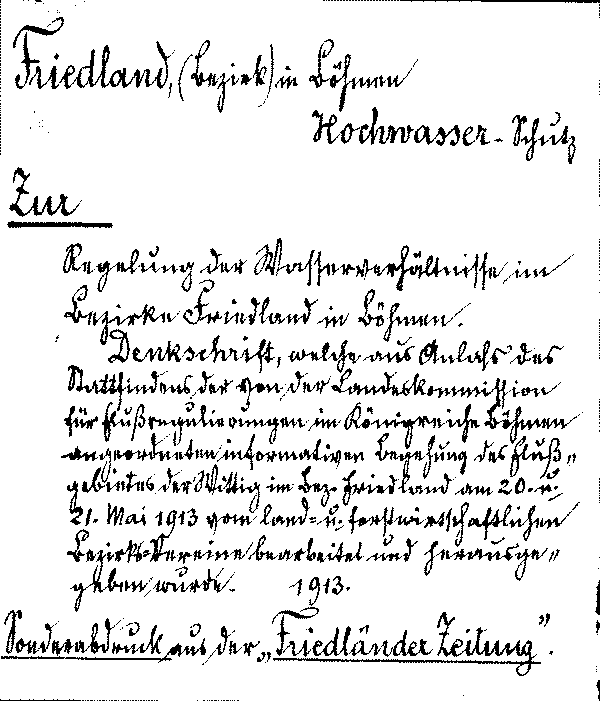 Friedland, (Bezirk) in Böhmen
Hochwasser-Schutz
Zur
Regelung der Wasserverhältnisse im
Bezirke Friedland in Böhmen.
Denkschrift, welche aus Anlaß des
Stattfindens der von der Landeskommission
für Flußregulierungen im Königreiche Böhmen
angeordneten informativen Begehung des Fluß„
gebietes der Wittig im Bez. Friedland am 20. u.
21. Mai 1913 vom land- u. forstwirtschaftlichen
Bezirks-Vereine bearbeitet und herausge„
geben wurde. 1913.
Sonderabdruck aus der „Friedländer Zeitung”.